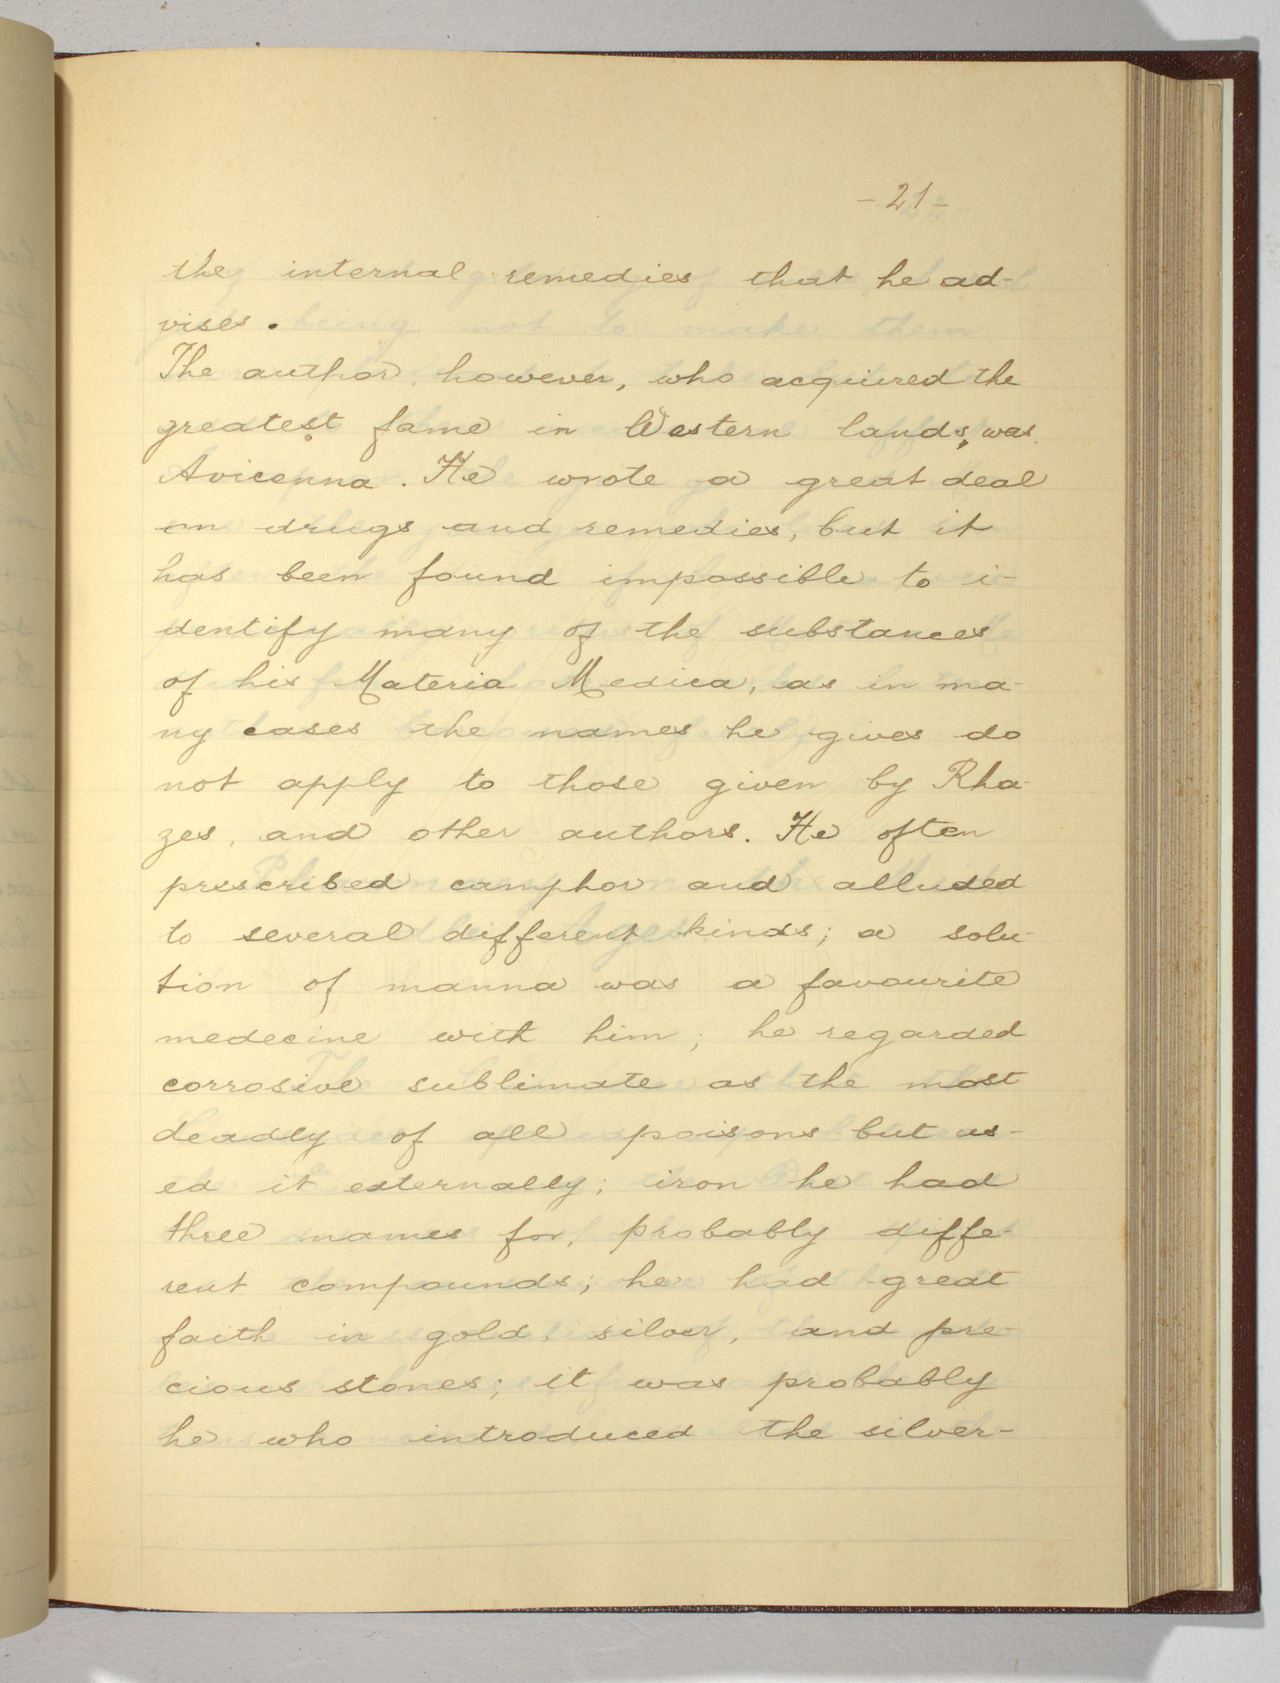 - 21 -
the internal remedies that he ad-
vises.
The author, however, who acquired the
greatest fame in Western lands, was
Avicenna. He wrote a great deal
on drugs and remedies, but it
has been found impossible to i-
dentify many of the substances
of his Materia Medica, as in ma-
ny cases the names he gives do
not apply to those given by Rha-
zes, and other authors. He often
prescribed camphor and alluded
to several different kinds; a solu-
tion of manna was a favourite
medecine with him; he regarded
corrosive sublimate as the most
deadly of all poisons but us-
ed it externally; iron he had
three names for, probably diffe-
rent compounds; he had great
faith in gold, silver, and pre-
cious stones; it was probably
he who introduced the silver-